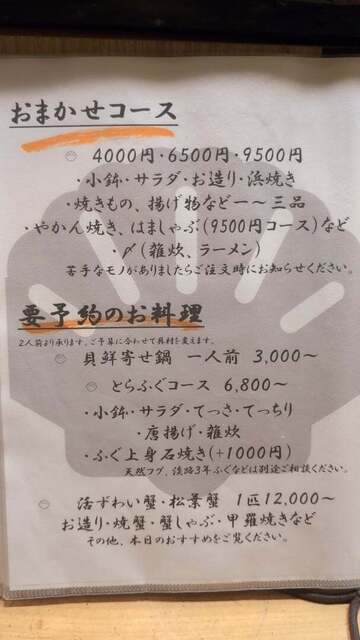 おまかせコース
○ 4000円・6500円・9500円
・小鉢・サラダ・お造り・浜焼き
・焼きもの、揚げ物など一〜三品
・やかん焼き、はましゃぶ(9500円コース)など
・〆(雑炊、ラーメン)
苦手なモノがありましたらご注文時にお知らせください。
要予約のお料理
2人前より承ります。ご予算に合わせて具材を変えます。
○ 貝鮮寄せ鍋 一人前 3,000〜
○ とらふぐコース 6,800〜
・小鉢・サラダ・てっさ・てっちり
・唐揚げ・雑炊
・ふぐ上身石焼き(+1000円)
天然フグ、淡路3年ふぐなどは別途ご相談ください。
○ 活ずわい蟹・松葉蟹 1匹12,000〜
お造り・焼蟹・蟹しゃぶ・甲羅焼きなど
その他、本日のおすすめをご覧ください。